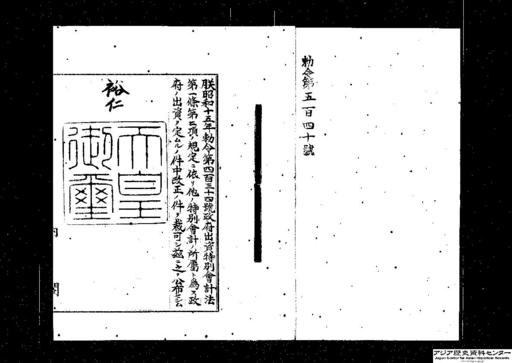 勅令第五百四十號
朕昭和十五年勅令第四百三十四號政府出資特別會計法
第一條第二項ノ規定ニ依リ他ノ特別會計ノ所屬ト爲ス政
府ノ出資ヲ定ムルノ件中改正ノ件ヲ裁可シ茲ニ之ヲ公布セシム
裕仁
天皇
御璽
内
閣
アジア歴史資料センター
Japan Center for Asian Historical Records